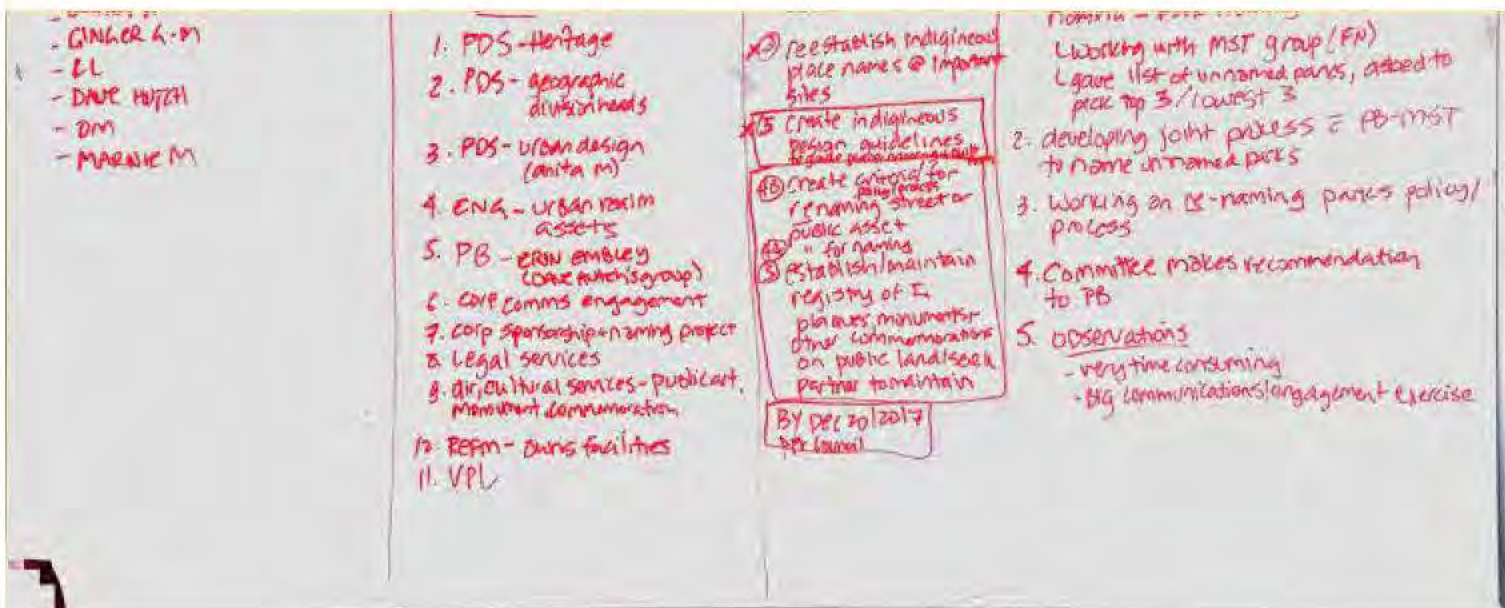 - GINGER G-M
- LL
- DAVE HUTCH
- DM
- MARNIE M
1. PDS-Heritage
2. PDS- geographic
division heads
3. PDS- urban design
(anita m)
4. ENG - urban realm
assets
5. PB - ERIN EMBLEY
(DAVE Hutch's group)
6. Corp comms engagement
7. Corp sponsorship + naming project
8. Legal services
9. dir, cultural services - public art,
monument commemoration
10. REFM - owns facilities
11. VPL
reestablish indigineous
place names @ important
sites
create indigineous
design guidelines
4B create criteria/for
policy/process
renaming street or
public asset
" for naming
establish/maintain
registry of
plaques, monuments +
other commemorations
on public land/seek
partner to maintain
BY DEC 2017
per Council
Working with MST group (FN)
gave list of unnamed parks, asked to
pick top 3/lowest 3
2. developing joint process PB-MST
to name unnamed parks
3. Working on re-naming parks policy/
process
4. Committee makes recommendation
to PB
5. observations
- very time consuming
- Big communications/engagement exercise